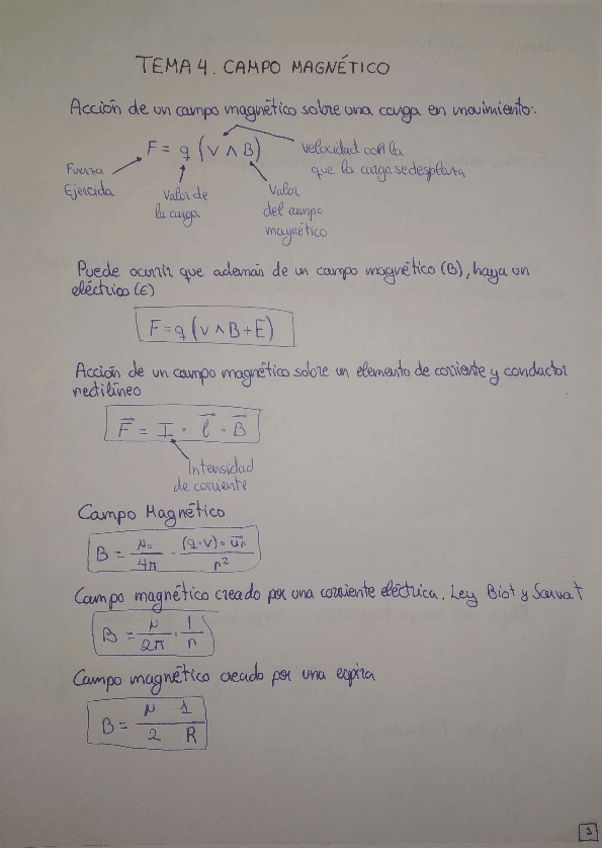 TEMA 4. CAMPO MAGNÉTICO
Acción de un campo magnético sobre una carga en movimiento:
F = q (v ∧ B)
velocidad con la
que la carga se desplaza
Fuerza
Ejercida
Valor de
la carga
Valor
del campo
magnético
Puede ocurrir que además de un campo magnético (B), haya un
eléctrico (E)
F = q (v ∧ B + E)
Acción de un campo magnético sobre un elemento de corriente y conductor
rectilíneo
F̅ = I · l̅ · B̅
Intensidad
de corriente
Campo Magnético
B = μ₀/4π · (q·v)·u̅r/r²
Campo magnético creado por una corriente eléctrica. Ley Biot y Savart
B = μ/2π · 1/r
Campo magnético creado por una espira
B = μ/2 1/R
1